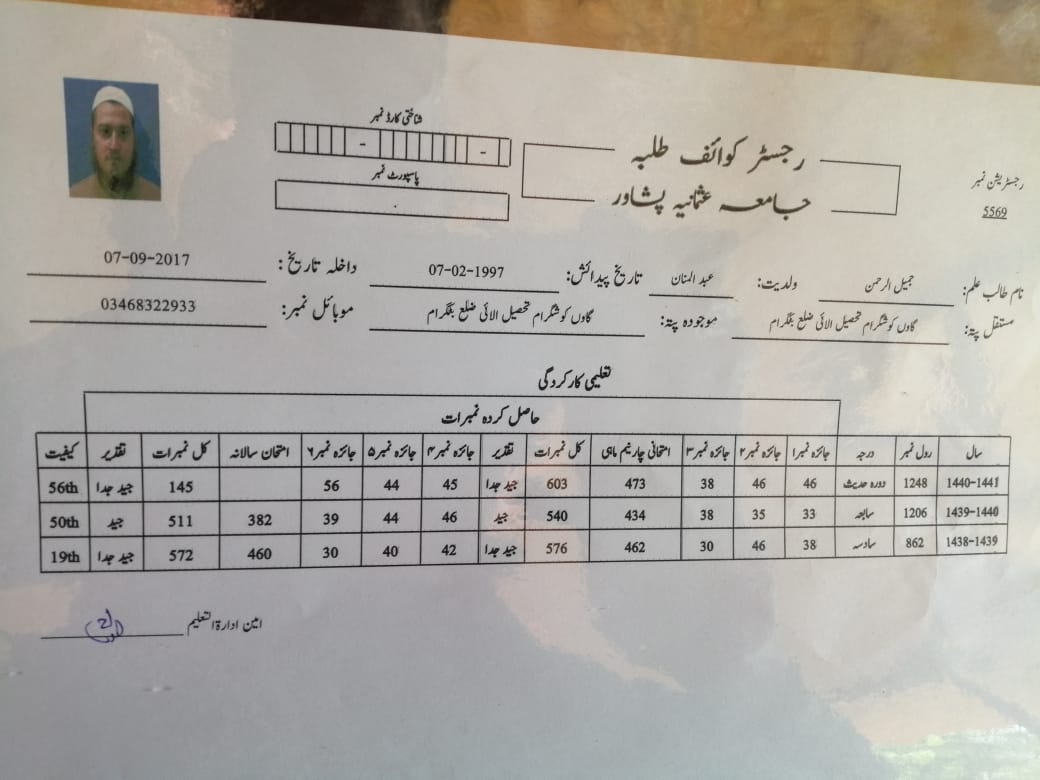 رجسٹر کوائف طلبہ
جامعہ عثمانیہ پشاور
رجسٹریشن نمبر
5569
شناختی کارڈ نمبر
- -
پاسپورٹ نمبر
نام طالب علم: جمیل الرحمن ولدیت: عبد المنان تاریخ پیدائش: 07-02-1997 داخلہ تاریخ: 07-09-2017
مستقل پتہ: گاوں کوشگرام تحصیل الائی ضلع بٹگرام موجودہ پتہ: گاوں کوشگرام تحصیل الائی ضلع بٹگرام موبائل نمبر: 03468322933
تعلیمی کارکردگی
حاصل کردہ نمبرات
سال رول نمبر درجہ جائزہ نمبر۱ جائزہ نمبر۲ جائزہ نمبر۳ امتحانی چار نیم ماہی کل نمبرات تقدیر جائزہ نمبر۴ جائزہ نمبر۵ جائزہ نمبر۶ امتحان سالانہ کل نمبرات تقدیر کیفیت
1440-1441 1248 دورہ حدیث 46 46 38 473 603 جید جدا 45 44 56 145 جید جدا 56th
1439-1440 1206 سابعہ 33 35 38 434 540 جید 46 44 39 382 511 جید 50th
1438-1439 862 سادسہ 38 46 30 462 576 جید جدا 42 40 30 460 572 جید جدا 19th
امین ادارۃ التعلیم